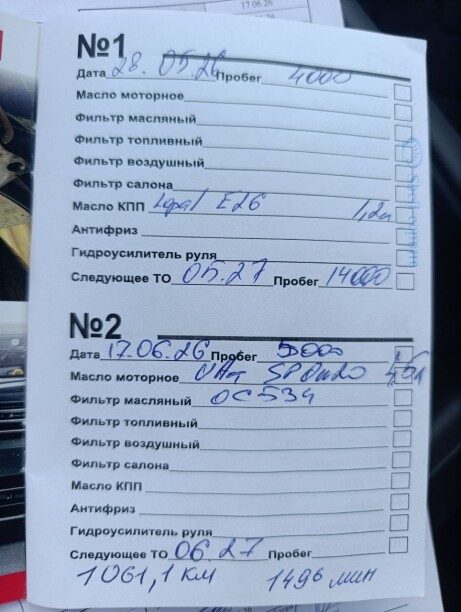 17.06.26
№1
Дата 28.05.26 Пробег 4000
Масло моторное
Фильтр масляный
Фильтр топливный
Фильтр воздушный
Фильтр салона
Масло КПП Lopal E26 1,2л
Антифриз
Гидроусилитель руля
Следующее ТО 05.27 Пробег 14000
№2
Дата 17.06.26 Пробег 5000
Масло моторное SP 0w20
Фильтр масляный OC534
Фильтр топливный
Фильтр воздушный
Фильтр салона
Масло КПП
Антифриз
Гидроусилитель руля
Следующее ТО 06.27 Пробег
1061,1 км 1496 мин